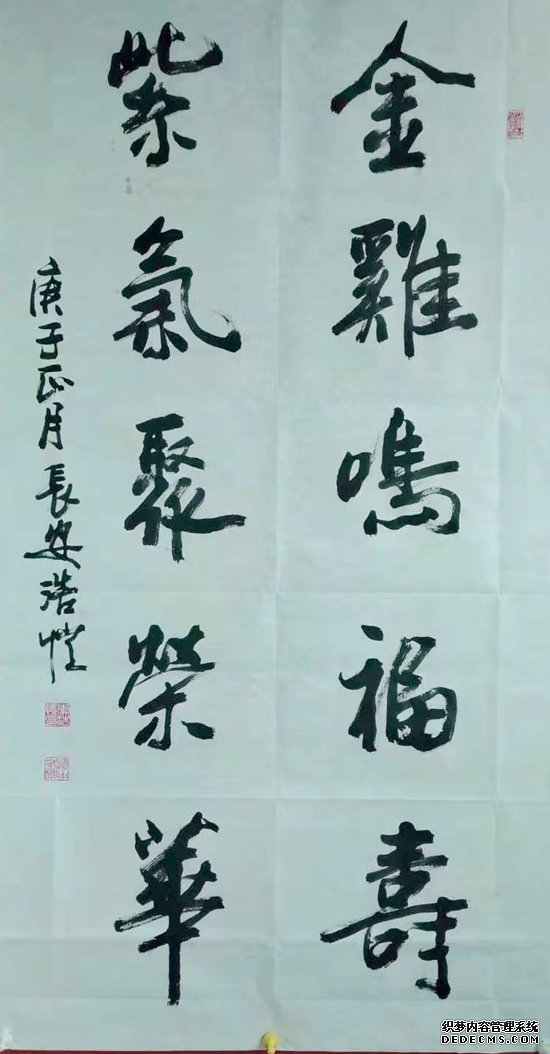 金雞鳴福壽
紫氣聚榮華
庚子正月長安浩恺
织梦内容管理系统
DEDECMS.COM